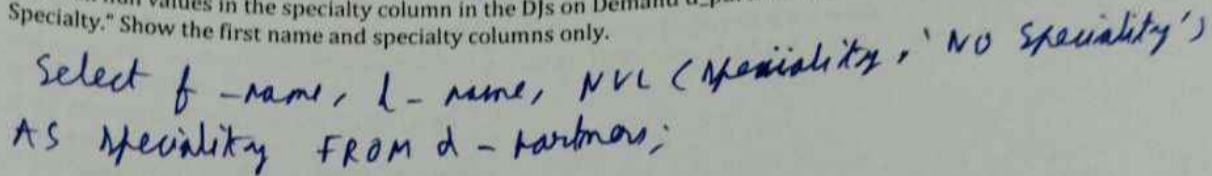 values in the specialty column in the DJs on Demand
Specialty." Show the first name and specialty columns only.
Select f_name, l_name, NVL (speciality, 'NO Speciality')
AS speciality FROM d_partners;